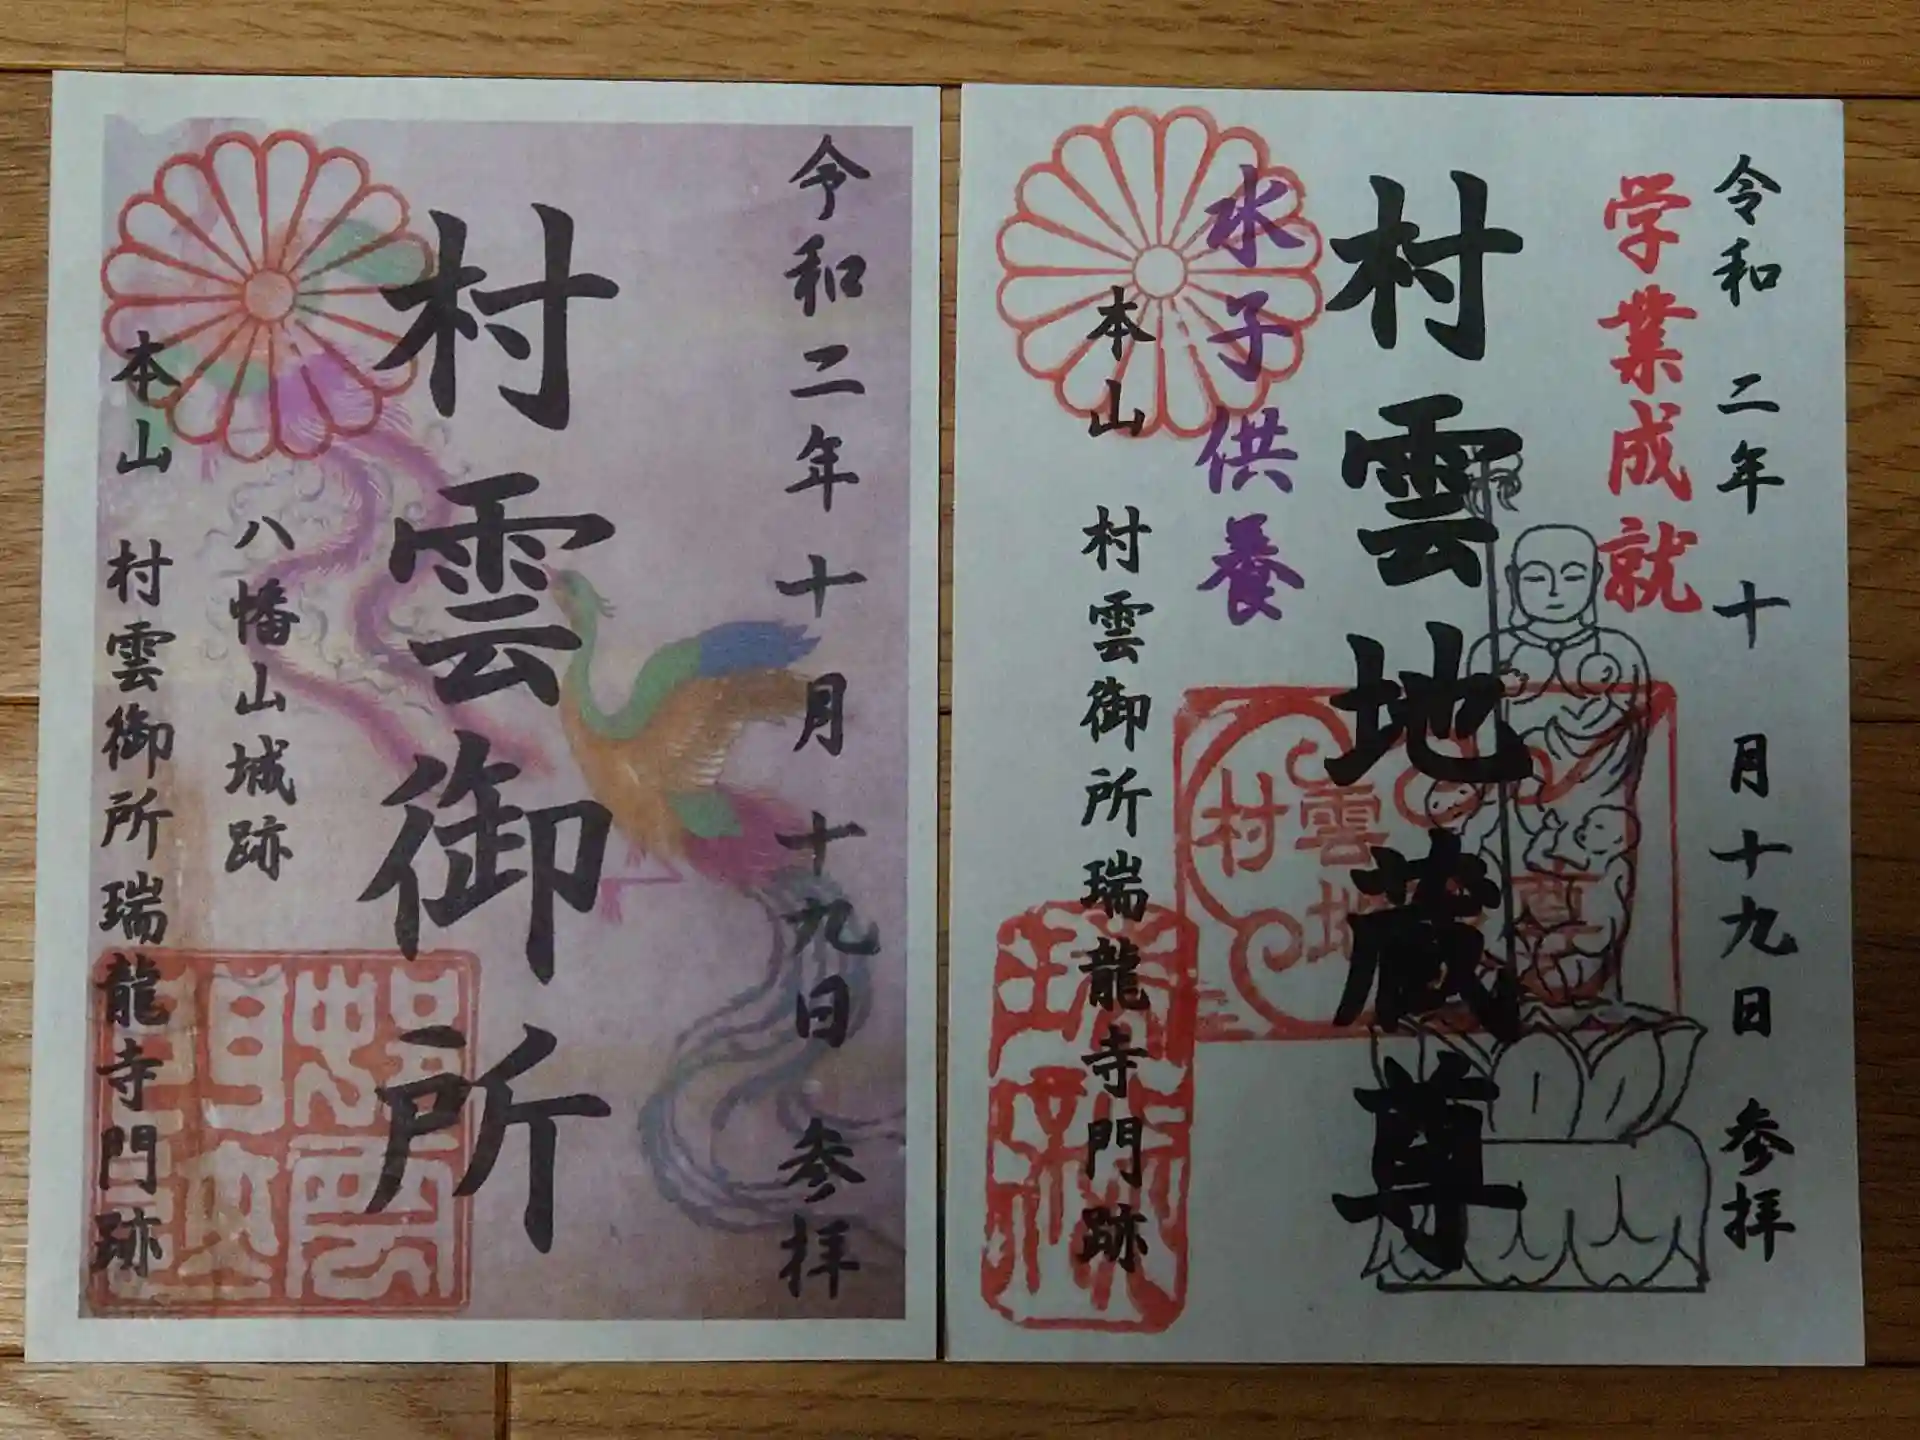 令和二年十月十九日 参拝
村雲御所
八幡山城跡
本山 村雲御所瑞龍寺門跡
令和二年十月十九日 参拝
学業成就
村雲地蔵尊
水子供養
本山 村雲御所瑞龍寺門跡
村雲
地